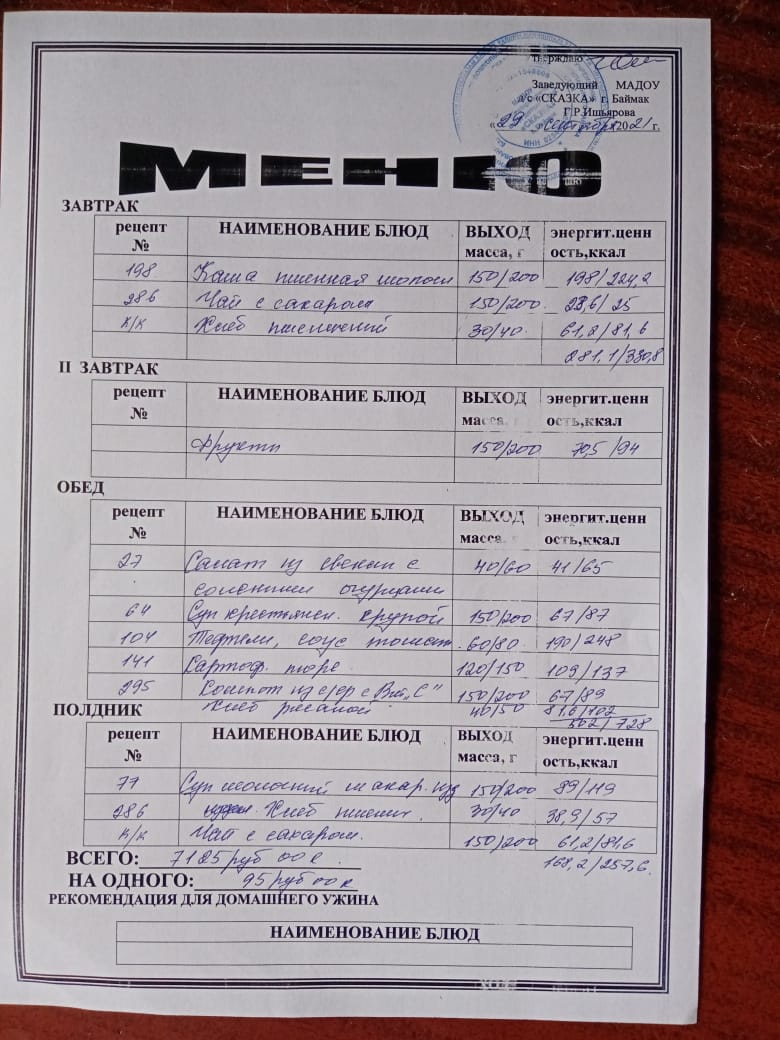 тверждаю
Заведующий МАДОУ
д/с «СКАЗКА» г. Баймак
Г.Р.Ишьярова
«29» сентября 2021 г.
МЕНЮ
ЗАВТРАК
рецепт № НАИМЕНОВАНИЕ БЛЮД ВЫХОД масса, г энергит.ценн ость,ккал
198 Каша пшенная молочн 150/200 198/224,2
286 Чай с сахаром 150/200 /25
К/К Хлеб пшеничный 30/40 61,2/81,6
281,1/330,8
II ЗАВТРАК
рецепт № НАИМЕНОВАНИЕ БЛЮД ВЫХОД масса, г энергит.ценн ость,ккал
Фрукты 150/200 70,5/94
ОБЕД
рецепт № НАИМЕНОВАНИЕ БЛЮД ВЫХОД масса, г энергит.ценн ость,ккал
27 Салат из свеклы с 40/60 41/65
солеными огурцами
64 Суп крестьянск. крупой 150/200 67/87
104 Тефтели, соус томат. 60/80 190/248
141 Картоф. пюре 120/150 109/137
295 Компот из с Вит „С" 150/200 67/89
Хлеб ржаной 40/50 81,6/102
502/728
ПОЛДНИК
рецепт № НАИМЕНОВАНИЕ БЛЮД ВЫХОД масса, г энергит.ценн ость,ккал
77 Суп молочный макар. изд 150/200 89/119
286 Хлеб пшенич. 30/40 38,9/57
К/К Чай с сахаром. 150/200 61,2/81,6
168,2/257,6.
ВСЕГО: 7125 руб 00 к
НА ОДНОГО: 95 руб 00 к
РЕКОМЕНДАЦИЯ ДЛЯ ДОМАШНЕГО УЖИНА
НАИМЕНОВАНИЕ БЛЮД